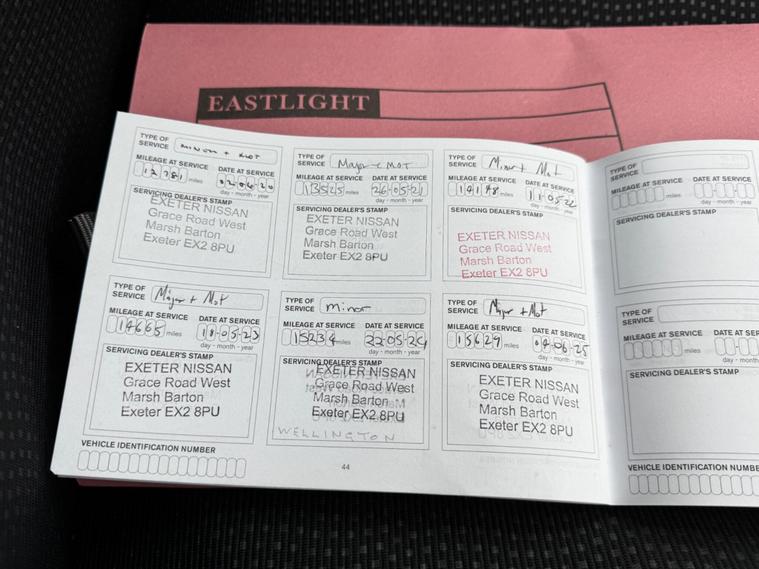 EASTLIGHT
TYPE OF SERVICE Minor + MOT
MILEAGE AT SERVICE DATE AT SERVICE
12781 miles 02 04 20
day - month - year
SERVICING DEALER'S STAMP
EXETER NISSAN
Grace Road West
Marsh Barton
Exeter EX2 8PU
TYPE OF SERVICE Major + MOT
MILEAGE AT SERVICE DATE AT SERVICE
13525 miles 26-05-21
day - month - year
SERVICING DEALER'S STAMP
EXETER NISSAN
Grace Road West
Marsh Barton
Exeter EX2 8PU
TYPE OF SERVICE Minor + Mot
MILEAGE AT SERVICE DATE AT SERVICE
miles 11-05-22
day - month - year
SERVICING DEALER'S STAMP
EXETER NISSAN
Grace Road West
Marsh Barton
Exeter EX2 8PU
TYPE OF SERVICE
MILEAGE AT SERVICE DATE AT SERVICE
miles
day - month - year
SERVICING DEALER'S STAMP
TYPE OF SERVICE Major + Mot
MILEAGE AT SERVICE DATE AT SERVICE
14665 miles 18-05-23
day - month - year
SERVICING DEALER'S STAMP
EXETER NISSAN
Grace Road West
Marsh Barton
Exeter EX2 8PU
TYPE OF SERVICE Minor
MILEAGE AT SERVICE DATE AT SERVICE
15234 miles 22-05-24
day - month - year
SERVICING DEALER'S STAMP
EXETER NISSAN
Grace Road West
Marsh Barton
Exeter EX2 8PU
WELLINGTON
TYPE OF SERVICE Major + Mot
MILEAGE AT SERVICE DATE AT SERVICE
15629 miles 04-06-25
day - month - year
SERVICING DEALER'S STAMP
EXETER NISSAN
Grace Road West
Marsh Barton
Exeter EX2 8PU
TYPE OF SERVICE
MILEAGE AT SERVICE DATE AT SERV
miles
day - month
SERVICING DEALER'S STAMP
VEHICLE IDENTIFICATION NUMBER
44
VEHICLE IDENTIFICATION NUMBE